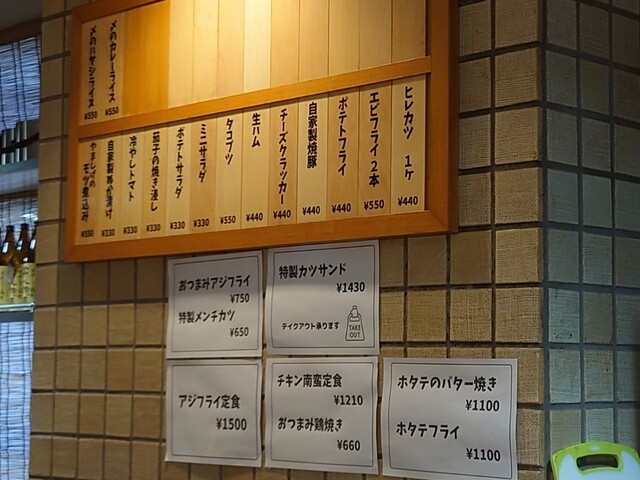 〆のカレーライス ¥550
〆のハヤシライス ¥550
ヒレカツ 1ケ ¥440
エビフライ 2本 ¥550
ポテトフライ ¥440
自家製焼豚 ¥440
チーズクラッカー ¥440
生ハム ¥440
タコブツ ¥550
ミニサラダ ¥330
ポテトサラダ ¥330
茄子の焼き浸し ¥330
冷やしトマト ¥330
¥330
やましげの
モツ煮込み ¥550
おつまみアジフライ
¥750
特製メンチカツ
¥650
特製カツサンド
¥1430
テイクアウト承ります
TAKE
OUT
アジフライ定食
¥1500
チキン南蛮定食
¥1210
おつまみ鶏焼き
¥660
ホタテのバター焼き
¥1100
ホタテフライ
¥1100